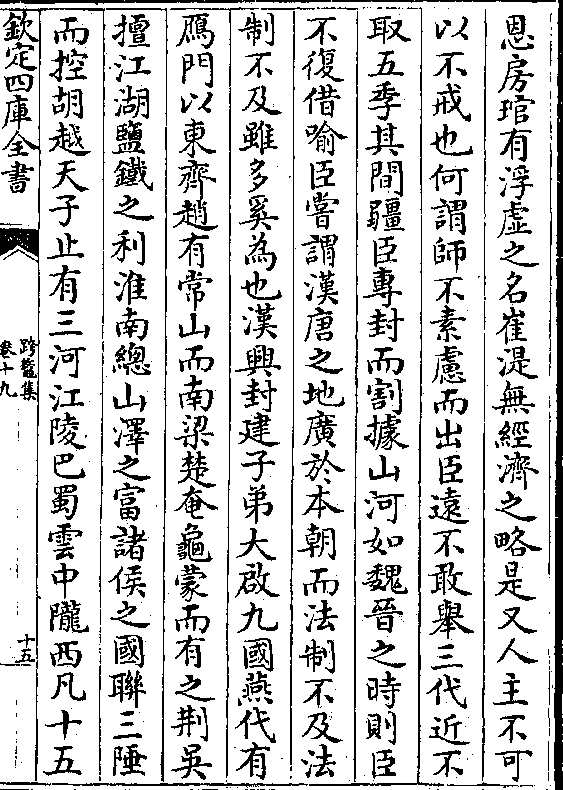 恩房琯有浮虛之名崔湜無經濟之略是又人主不可
以不戒也何謂師不素慮而出臣遠不敢舉三代近不
取五季其間疆臣專封而割據山河如魏晉之時則臣
不復借喻臣嘗謂漢唐之地廣於本朝而法制不及法
制不及雖多奚為也漢興封建子弟大啟九國燕代有
鴈門以東齊趙有常山而南梁楚奄龜蒙而有之荆吳
擅江湖鹽鐵之利淮南總山澤之富諸侯之國聯三陲
而控胡越天子止有三河江陵巴蜀雲中隴西凡十五
欽定四庫全書
跨鼇集
卷十九
十五